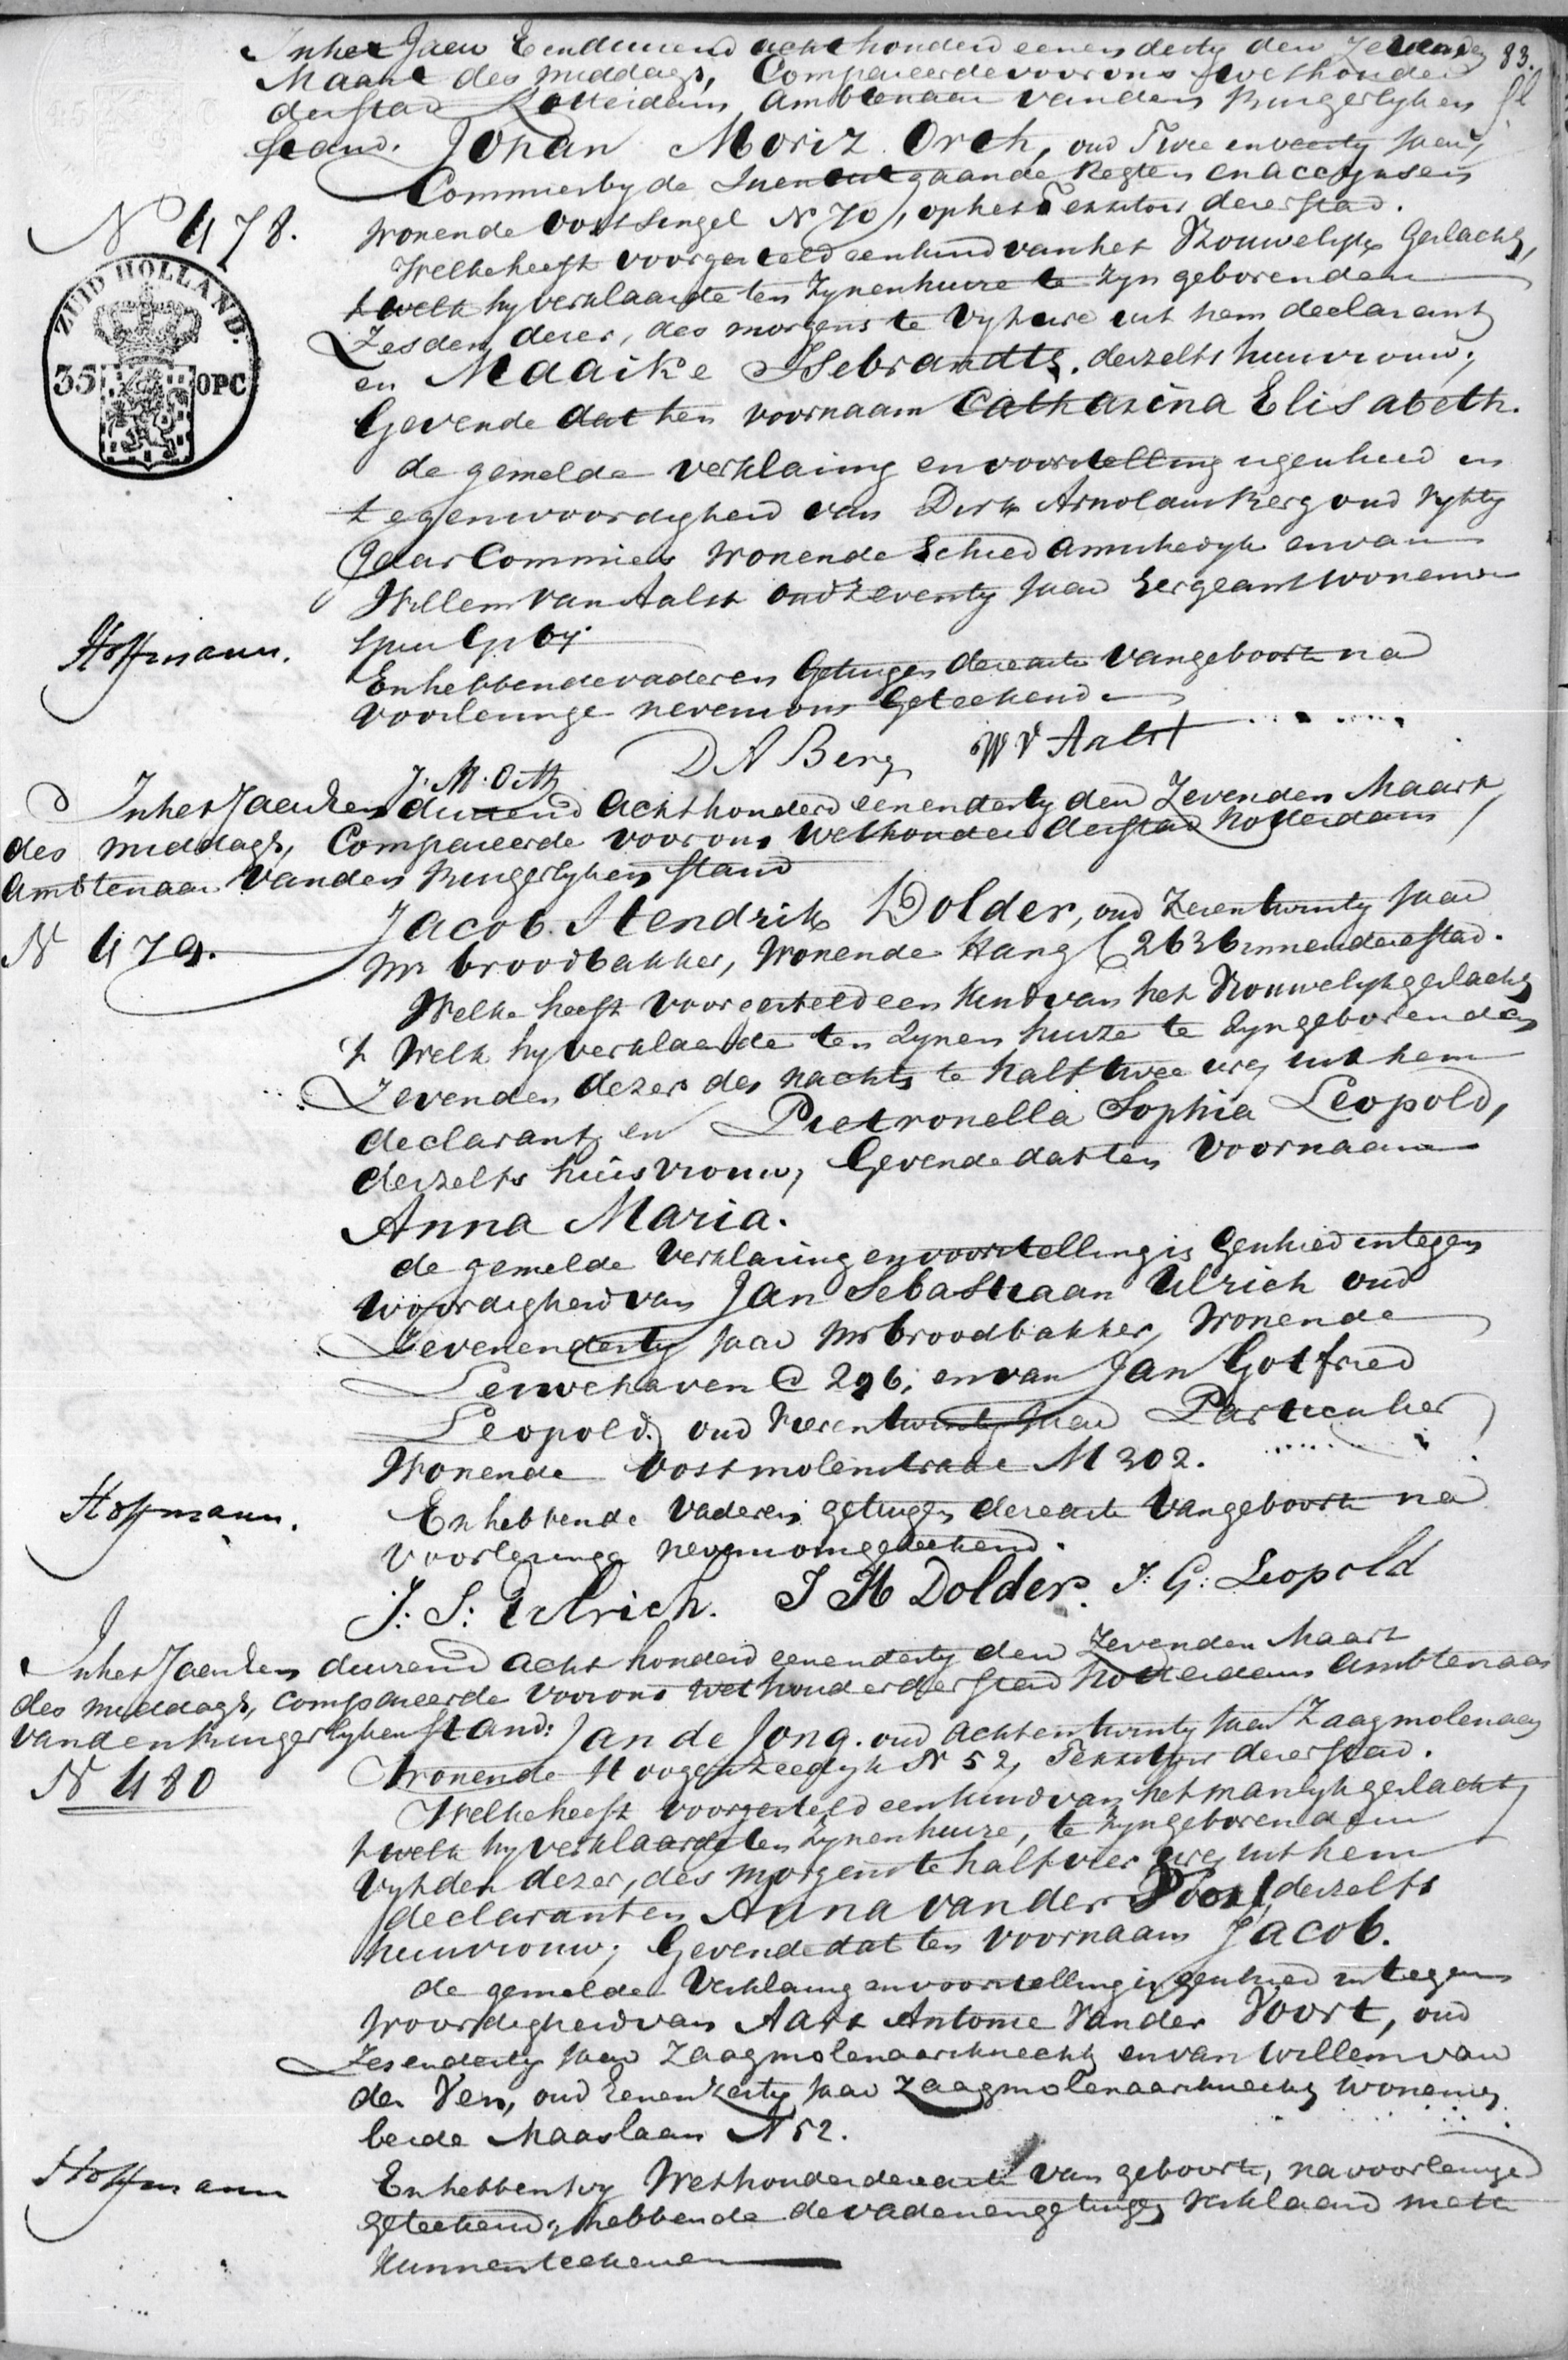 In het Jaar Eenduizend acht honderd eenendertig den Zevenden 83.
Maart des middags, Compareerde voor ons Wethouder
der stad Rotterdam Ambtenaar van den Burgerlyken
stand. Johan Moriz Orth, oud Twee en veertig Jaar,
Commies by de In en uitgaande Regten en accynsen
N 478. Wonende Oostsingel N 70, op het Territoir dezer stad.
Welke heeft voorgesteld een kind van het Vrouwelyk Geslacht,
t welk hy verklaarde ten Zynen huize te Zyn geboren den
Zesden dezer, des morgens te Vyf ure uit hem declarant
ZUID HOLLAND.
35 OPC
en Maaike IJsebrandts. deszelfs huisvrouw;
Gevende dat ten voornaam Catharina Elisabeth.
de gemelde verklaring en voorstelling is geschied in
tegenwoordigheid van Dirk Arnoldus Berg oud Vyftig
Jaar Commies Wonende Schiedamschedyk en van
Willem van Aalst oud Zeventig Jaar Sergeant wonende
Hoffmann.
En hebben de vader en Getuigen deze acte van geboorte na
voorlezinge nevens ons Geteekend
J. M. Orth D A Berg W V Aalst
In het Jaar Eenduizend Achthonderd een en dertig den Zevenden Maart,
des middags, Compareerde voor ons Wethouder der stad Rotterdam
Ambtenaar van den Burgerlyken stand
N 479. Jacob Hendrik Dolder, oud Zeven twintig Jaar
Mr broodbakker, Wonende Hang C 263 binnen deze stad.
Welke heeft voorgesteld een kind van het Vrouwelyk geslacht
't Welk hy verklaarde ten Zynen huize te Zyn geboren den
Zevenden dezer des nachts te half twee ure, uit hem
declarant, en Pietronella Sophia Leopold,
deszelfs huisvrouw, Gevende dat ten voornaam
Anna Maria.
de gemelde Verklaring en voorstelling is Geschied in tegen
woordigheid van Jan Sebastiaan Ulrich oud
Zevenendertig Jaar Mr broodbakker, Wonende
Leuvehaven C 296, en van Jan Gotfried
Leopold, oud Vierentwintig Jaar Particulier
Wonende Oostmolenstraat M 302.
Hoffmann. En hebben de Vader en getuigen deze acte van geboorte na
voorlezinge nevens ons geteekend.
J: S: Ulrich. J H Dolder. J: G: Leopold
In het Jaar Een duizend acht honderd een en dertig den Zevenden Maart
des middags, compareerde voor ons Wethouder der stad Rotterdam Ambtenaar
van den Burgerlyken stand: Jan de Jong. oud achtentwintig Jaar Zaagmolenaar
N 480 Wonende Hoogenzeedyk N 52, Territoir dezer stad.
Welke heeft voorgesteld een kind van het manlyk geslacht,
t welk hy verklaarde ten Zynen huize, te Zyn geboren den
Vyfden dezer, des morgens te half vier ure, uit hem
declarant en Anna van der Poort, deszelfs
huisvrouw; Gevende dat ten voornaam Jacob.
de gemelde Verklaring en voorstelling is geschied in tegen
Woordigheid van Aart Antonie Van der Voort, oud
Zesendertig Jaar Zaagmolenaarsknecht en van Willem van
der Ven, oud Eenendertig Jaar Zaagmolenaarsknecht, Wonende
beide Maaslaan N 52.
Hoffmann En hebben wy Wethouder deze acte van geboorte, na voorlezinge
geteekend, hebbende de vader en getuigen Verklaard niet te
Kunnen teekenen